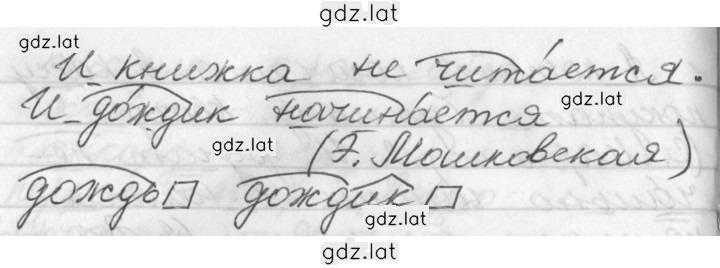 gdz.lat
gdz.lat
И книжка не чита́ется.
И до́ждик начина́ется
gdz.lat
gdz.lat
(Э. Мошковская)
дождь дождик
gdz.lat
gdz.lat